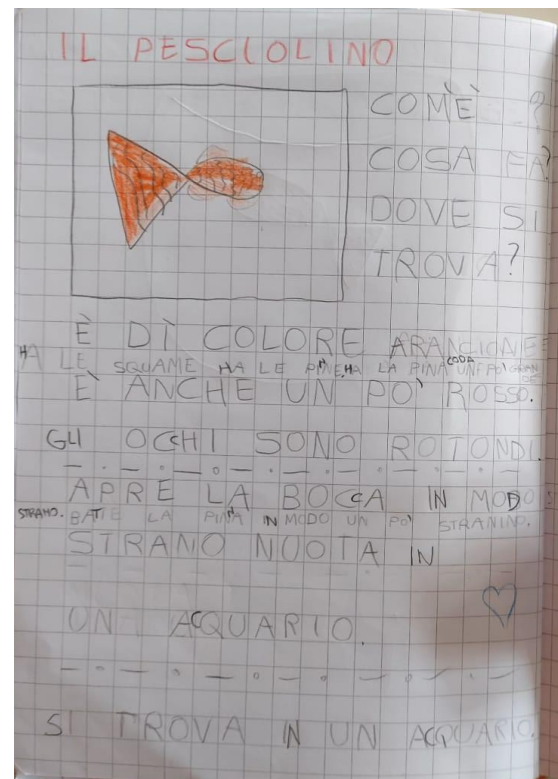 IL PESCIOLINO
COM'È ?
COSA FA?
DOVE SI
TROVA?
È DÌ COLORE ARANCIONE E
HA LE SQUAME HA LE PINNE, HA LA PINNA CODA UN PO' GRANDE
È ANCHE UN PO' ROSSO.
GLI OCCHI SONO ROTONDI.
APRE LA BOCCA IN MODO
STRANO. BATTE LA PINNA IN MODO UN PO' STRANINO.
STRANO NUOTA IN
UN ACQUARIO.
SI TROVA IN UN ACQUARIO.